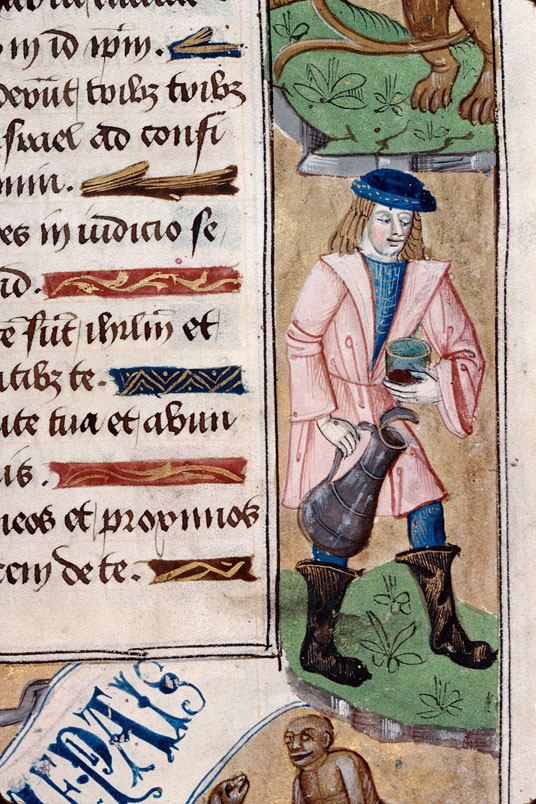 in id ip̄m.
derūt tribꝫ tribꝫ
israel ad confi
mini.
es in iudicio se
id.
e sūt ihrl̄m et
tibꝫ te.
ute tua et abun
is.
meos et proximos
cem de te.
E·PAIS